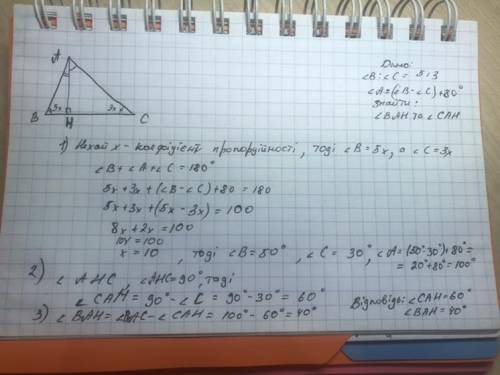 A
B 5x H 3x C
Дано:
∠B:∠C = 5:3
∠A=(∠B-∠C)+80°
Знайти:
∠BAH та ∠CAH
1) Нехай x - коефіцієнт пропорційності, тоді ∠B=5x, а ∠C=3x
∠B+∠A+∠C=180°
5x+3x+(∠B-∠C)+80=180
5x+3x+(5x-3x)=100
8x+2x=100
10x=100
x=10, тоді ∠B=50°, ∠C=30°, ∠A=(50°-30°)+80°=
= 20°+80°=100°
2) ∠AHC, ∠AHC=90°, тоді
∠CAH=90°-∠C=90°-30°=60°
3) ∠BAH=∠BAC-∠CAH=100°-60°=40°
Відповідь: ∠CAH=60°
∠BAH=40°